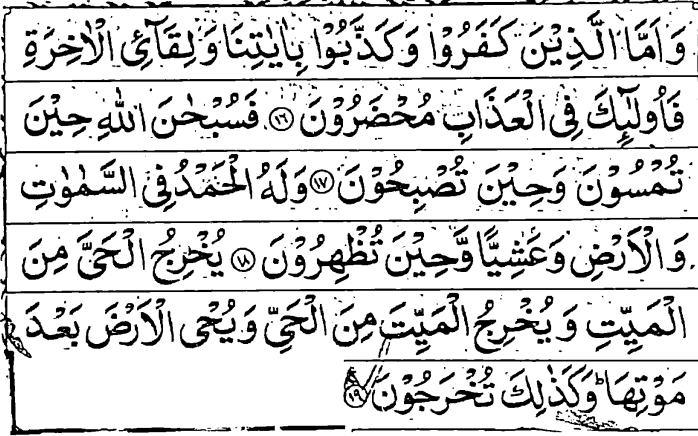 وَاَمَّا الَّذِيْنَ كَفَرُوْا وَكَذَّبُوْا بِاٰيٰتِنَا وَلِقَآئِ الْاٰخِرَةِ
فَاُولٰٓئِكَ فِى الْعَذَابِ مُحْضَرُوْنَ ۝۱۶ فَسُبْحٰنَ اللّٰهِ حِيْنَ
تُمْسُوْنَ وَحِيْنَ تُصْبِحُوْنَ ۝۱۷ وَلَهُ الْحَمْدُ فِى السَّمٰوٰتِ
وَالْاَرْضِ وَعَشِيًّا وَّحِيْنَ تُظْهِرُوْنَ ۝۱۸ يُخْرِجُ الْحَىَّ مِنَ
الْمَيِّتِ وَيُخْرِجُ الْمَيِّتَ مِنَ الْحَىِّ وَيُحْىِ الْاَرْضَ بَعْدَ
مَوْتِهَا ؕ وَكَذٰلِكَ تُخْرَجُوْنَ ۝۱۹